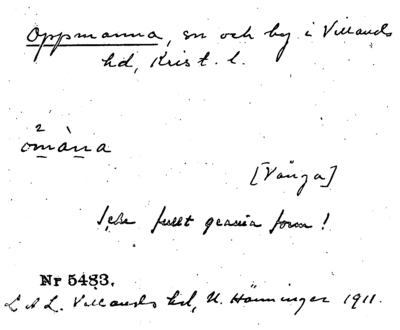 Oppmanna, sn och by i Villands
hd, Krist. l.
2
omàna
[Vånga]
fullt form!
Nr 5483.
L A L. Villands hd, N. Hänninger 1911.